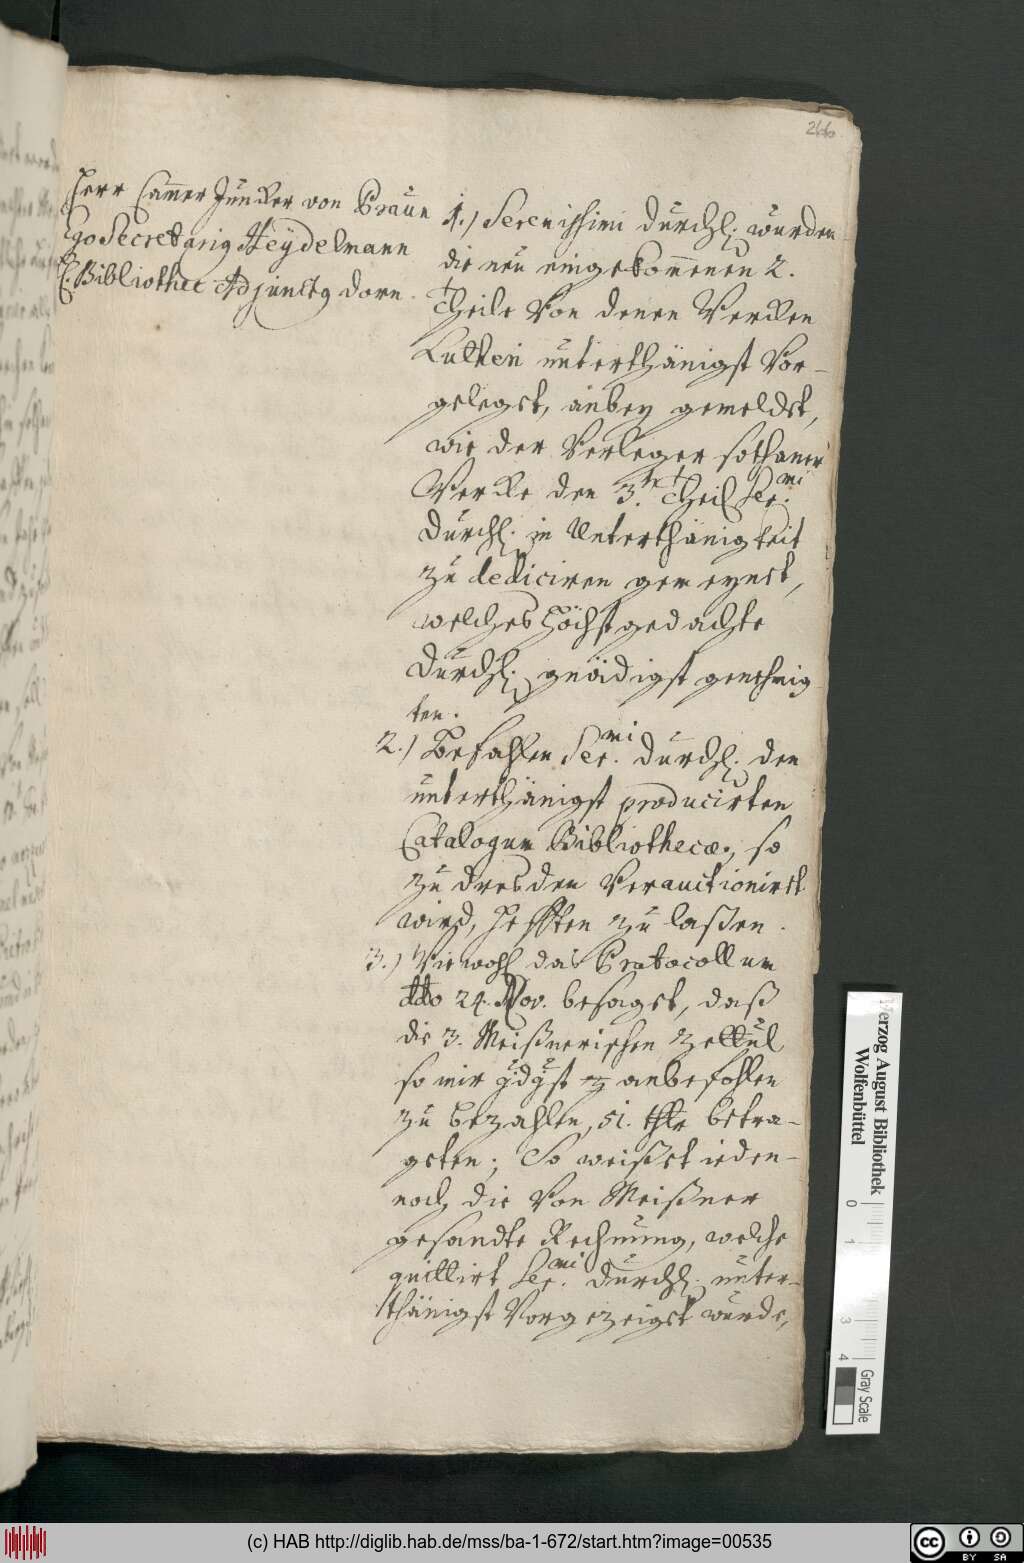 266.
Herr Cammer Juncker von Praun
Ego Secretarius Heÿdelmann
E. Bibliothec Adjunctus Dorn.
1.) Serenissimi Durchl. wurden
die neu eingekommenen 2.
Theile von denen Wercken
Lutheri unterthänigst vor-
gelegst, anbey gemeldet,
wie der Verleger sothaner
Wercke den 3.tn Theil Ser.mi
Durchl. in Unterthänigkeit
zu dediciren gemeynet,
welches Höchstgedachte
Durchl. gnädigst genehmig
ten.
2.) Befahlen Ser.mi Durchl. den
unterthänigst producirten
Catalogum Bibliothecæ, so
zu Dresden verauctioniret
wird, hefften zu laßen.
3.) Wiewohl das Protocollum
dto 24. Nov. besaget, daß
die 3. Meißnerischen Zettul
so mir gdgst anbefohlen
zu bezahlen, 51. thlr betra-
geten; So weißet ieden-
noch die von Meißner
gesandte Rechnung, welche
quittirt Ser.mi Durchl. unter-
thänigst vorgezeiget wurde,
Herzog August Bibliothek
Wolfenbüttel
0
1
3
4
Gray Scale
(c) HAB http://diglib.hab.de/mss/ba-1-672/start.htm?image=00535
cc
BY
SA